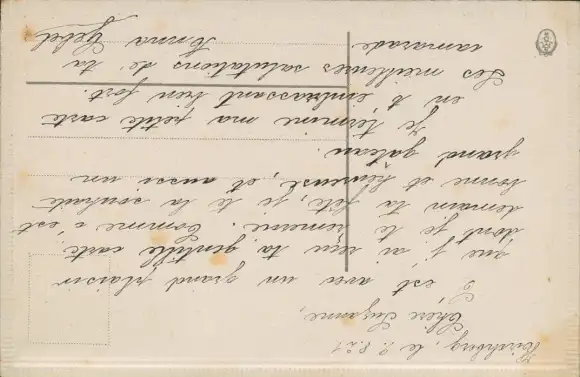 le 2.8.21
Chère Suzanne,
C'est avec un grand plaisir
que j'ai reçu ta gentille carte
dont je te remercie. Comme c'est
demain ta fête, je te la souhaite
bonne et heureuse, et aussi un
grand gâteau.
Je termine ma petite carte
en t'embrassant bien fort.
Les meilleures salutations de ta
camarade. Anna Gebel